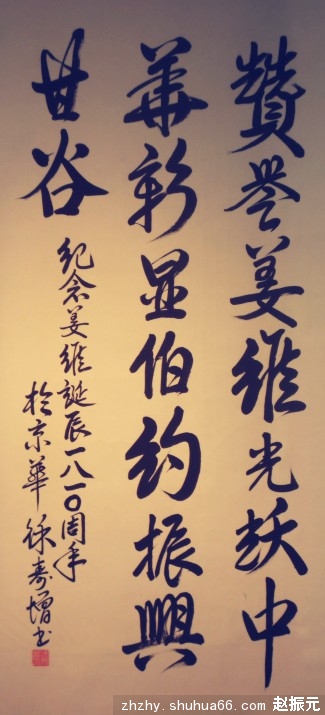 贊誉姜維光跃中
華彰显伯约振興
甘谷
纪念姜維誕辰一八一〇周年
於京華 徐寿增书
zhzhy.shuhua66.com 赵振元